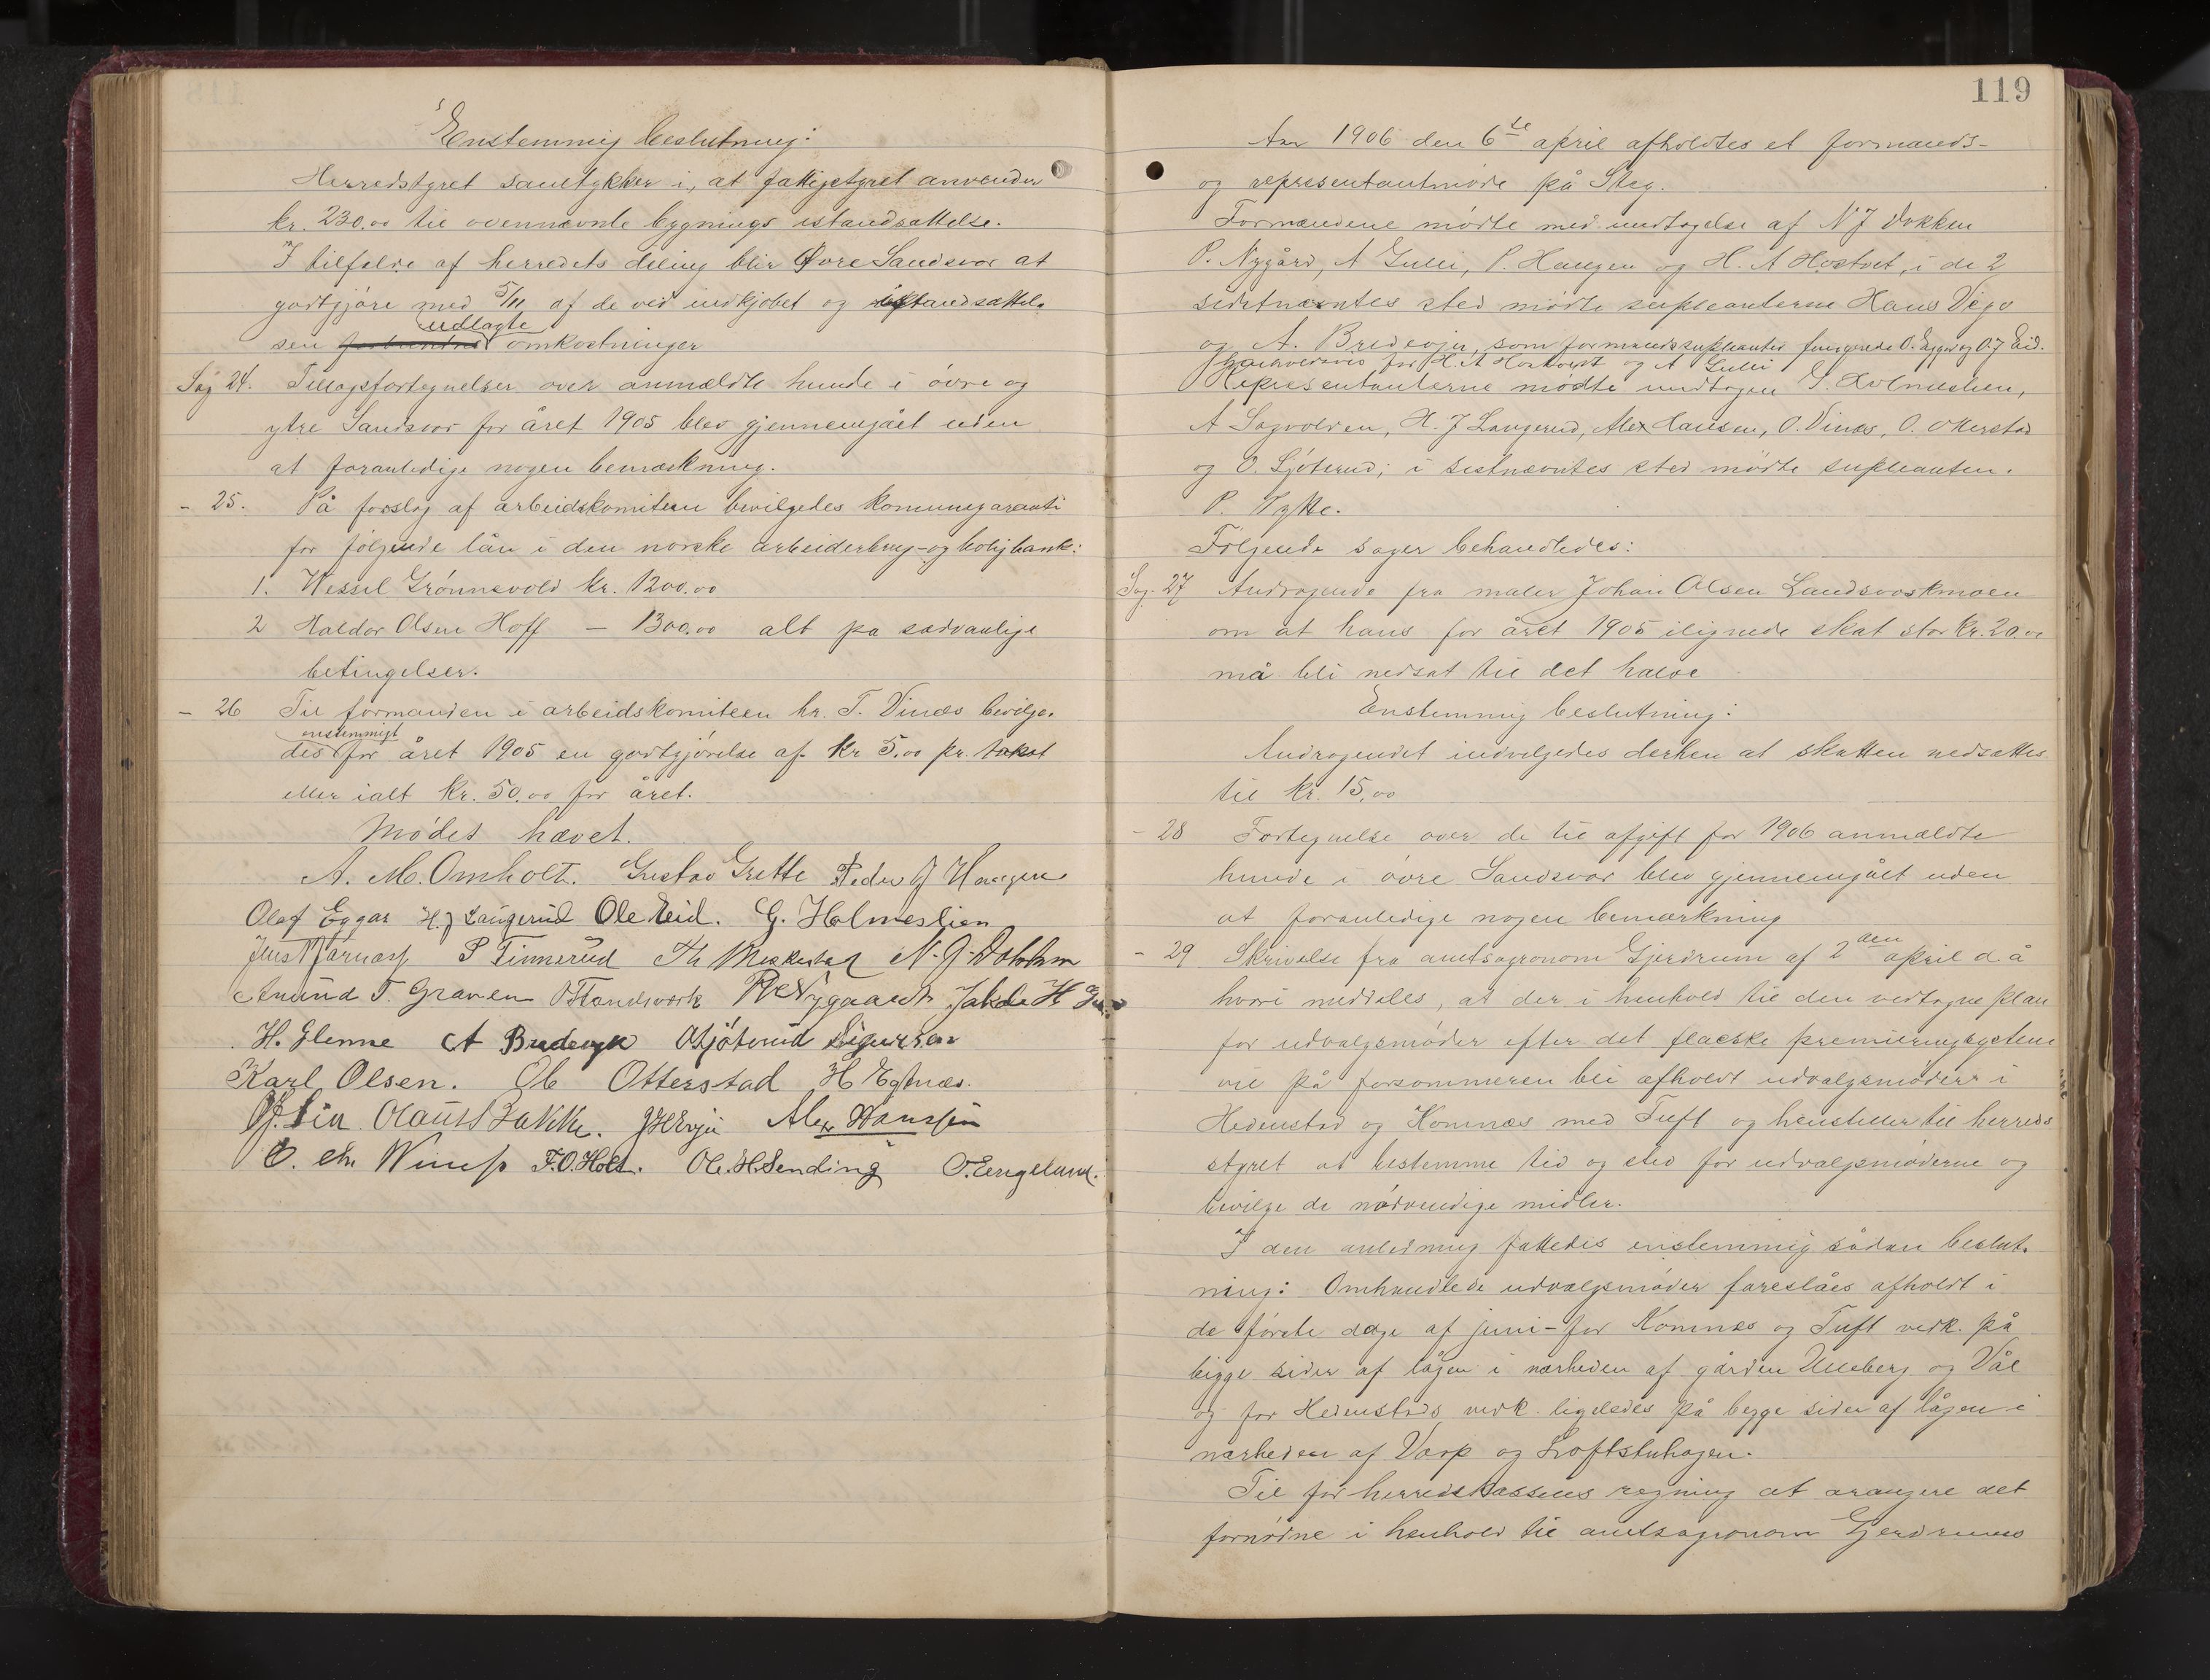 Enstemmig beslutning:
Herredstyret samtykker i, at fattigstyret anvender
kr. 230.00 til ovennævnte bygnings istandsættelse.
I tilfælde af herredets deling blir Øvre Sandsvær at
godtgjøre med 5/11 af de ved indkjøbet og istandsættel-
sen udlagte omkostninger
Sag 24. Tillægsfortegnelser over anmældte hunde i øvre og
ytre Sandsvær for året 1905 blev gjennemgået uden
at foranledige nogen bemærkning.
- 25. På forslag af arbeidskomiteen bevilgedes kommunegaranti
for følgende lån i den norske arbeiderbrug- og boligbank:
1. Wessel Grønnevold kr. 1200.00
2 Haldor Olsen Hoff — 1300.00 alt pa sædvanlige
betingelser.
- 26 Til formanden i arbeidskomiteen hr. T. Vinæs bevilge-
enstemmigt
des for året 1905 en godtgjørelse af kr 5.00 pr. takst
eller ialt kr. 50.00 for året.
Mødet hævet.
A. M. Omholt. Gustav Grette Peder J Haugen
Olaf Eggar H. J Laugerud Ole Eid. G. Holmeslien
P Tinnerud Th N. J. Dokken
Amund T. Graven P Nygaard Jakob H
H. Glenne A Bredevje O Sjøterud
Karl Olsen. Ole Otterstad H Egtnæs.
Olaus Bakke. Alex Hanssen
O. Chr F. O. Holt. Ole. H. Sending O. Engelund.
119
Aar 1906 den 6te april afholdtes et formands-
og representantmøde på Steg.
Formændene mødte med undtagelse af N J Dokken
P. Nygård, A Gulli, P. Haugen og H. A Hostvet, i de 2
sidstnævntes sted mødte supleanterne Hans Vego
og A. Bredevjen, som formandssupleanter fungerede O. Eggar og O. J Eid.
henholdsvis for H. A Hostvet og A Gulli
Representanterne mødte undtagen G. Holmeslien,
A Sagvolden, H. J Laugerud, Alex Hansen, O. Vinæs, O. Otterstad
og O. Sjøterud; i sistnævntes sted mødte supleanten.
P. Tykke.
Følgende sager behandledes:
Sag. 27 Andragende fra maler Johan Olsen Sandsværkmoen
om at hans for året 1905 ilignede skat stor kr. 20.00
må bli nedsat til det halve
Enstemmig beslutning:
Andragendet indvilgedes derhen at skatten nedsættes
til kr. 15,00
- 28 Fortegnelse over de til afgift for 1906 anmældte
hunde i øvre Sandsvær blev gjennemgået uden
at foranledige nogen bemærkning
- 29 Skrivelse fra amtsagronom Gjerdrum af 2den april d. å
hvori meddeles, at der i henhold til den vedtagne plan
for udvalgsmøder efter det flaaske premieringssystem
vil på forsommeren bli afholdt udvalgsmøder i
Hedenstad og Komnæs med Tuft og henstiller til herreds
styret at bestemme tid og sted for udvalgsmøderne og
bevilge de nødvendige midler.
I den anledning fattedes enstemmig sådan beslut-
ning: Omhandlede udvalgsmøder foreslåes afholdt i
de første dage af juni - for Komnæs og Tuft vedk. på
begge sider af lågen i nærheden af gården Ulleberg og Våle
og for Hedenstads vedk. ligeledes på begge sider af lågen i
nærheden af Varp og Loftstuhagen.
Til for herredskassens regning at arangere det
fornødne i henhold til amtsagronom Gjerdrums